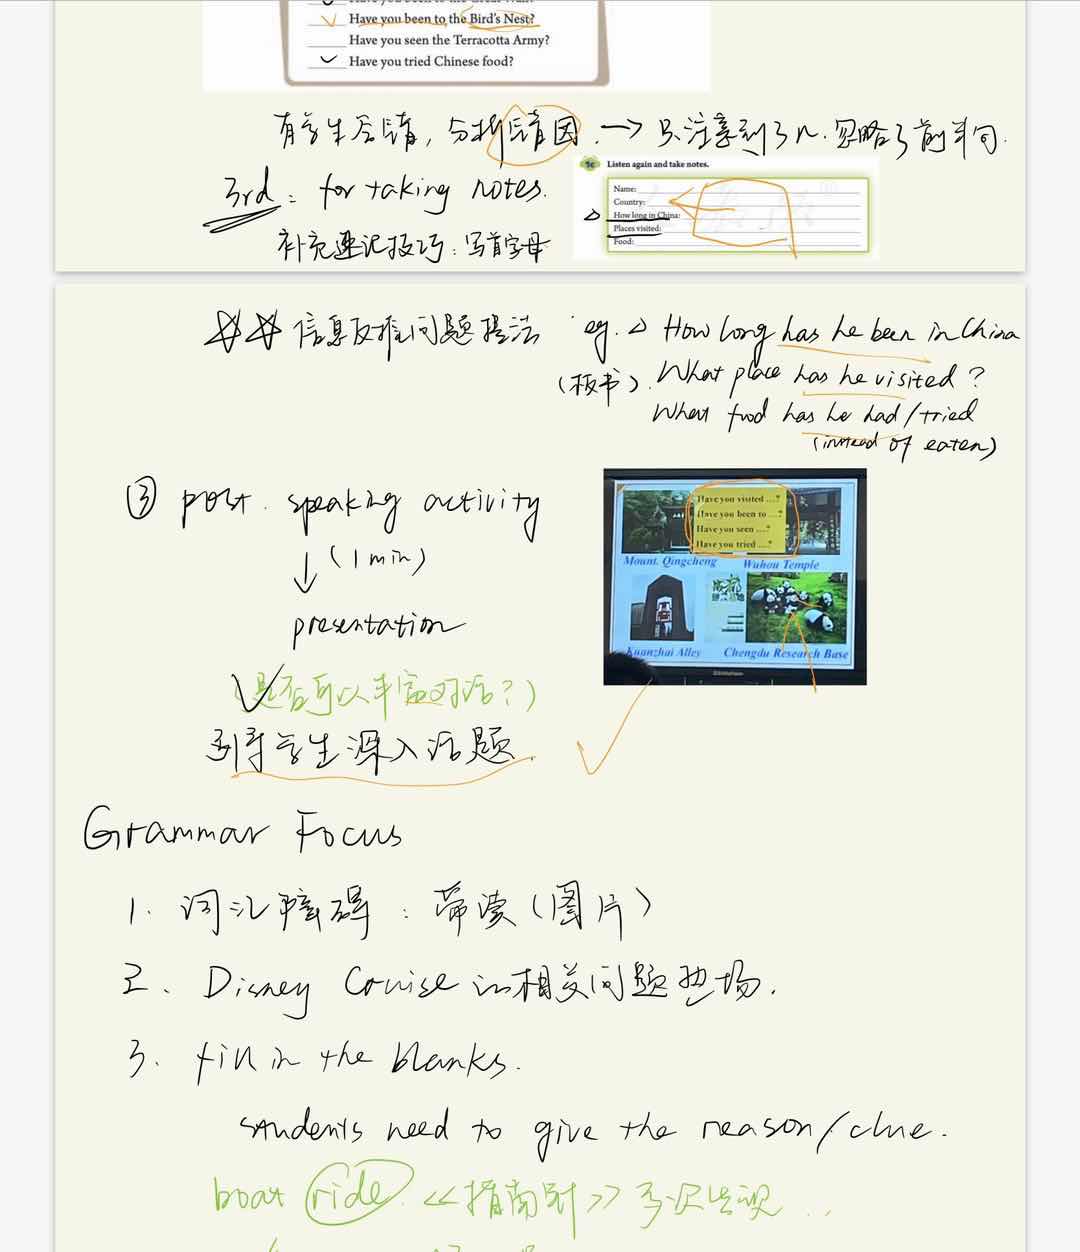 Have you been to the Great Wall?
Have you been to the Bird's Nest?
Have you seen the Terracotta Army?
Have you tried Chinese food?
有学生会错，分析错因. → 只注意到了n.忽略了前半句.
3rd: for taking notes.
补充速记技巧：写首字母
1c Listen again and take notes.
Name:
Country:
How long in China:
Places visited:
Food:
信息反推问题提法 eg. How long has he been in China
(板书). What place has he visited?
What food has he had/tried
(instead of eaten)
③ post. speaking activity
(1 min)
presentation
(是否可以丰富对话？)
引导学生深入话题.
Have you visited ...?
Have you been to ...?
Have you seen ...?
Have you tried ...?
Mount. Qingcheng Wuhou Temple
Kuanzhai Alley Chengdu Research Base
Grammar Focus
1. 词汇障碍：带读(图片)
2. Disney Cruise 以相关问题热场.
3. fill in the blanks.
students need to give the reason/clue.
boat ride. <<指南针>> 多次出现...